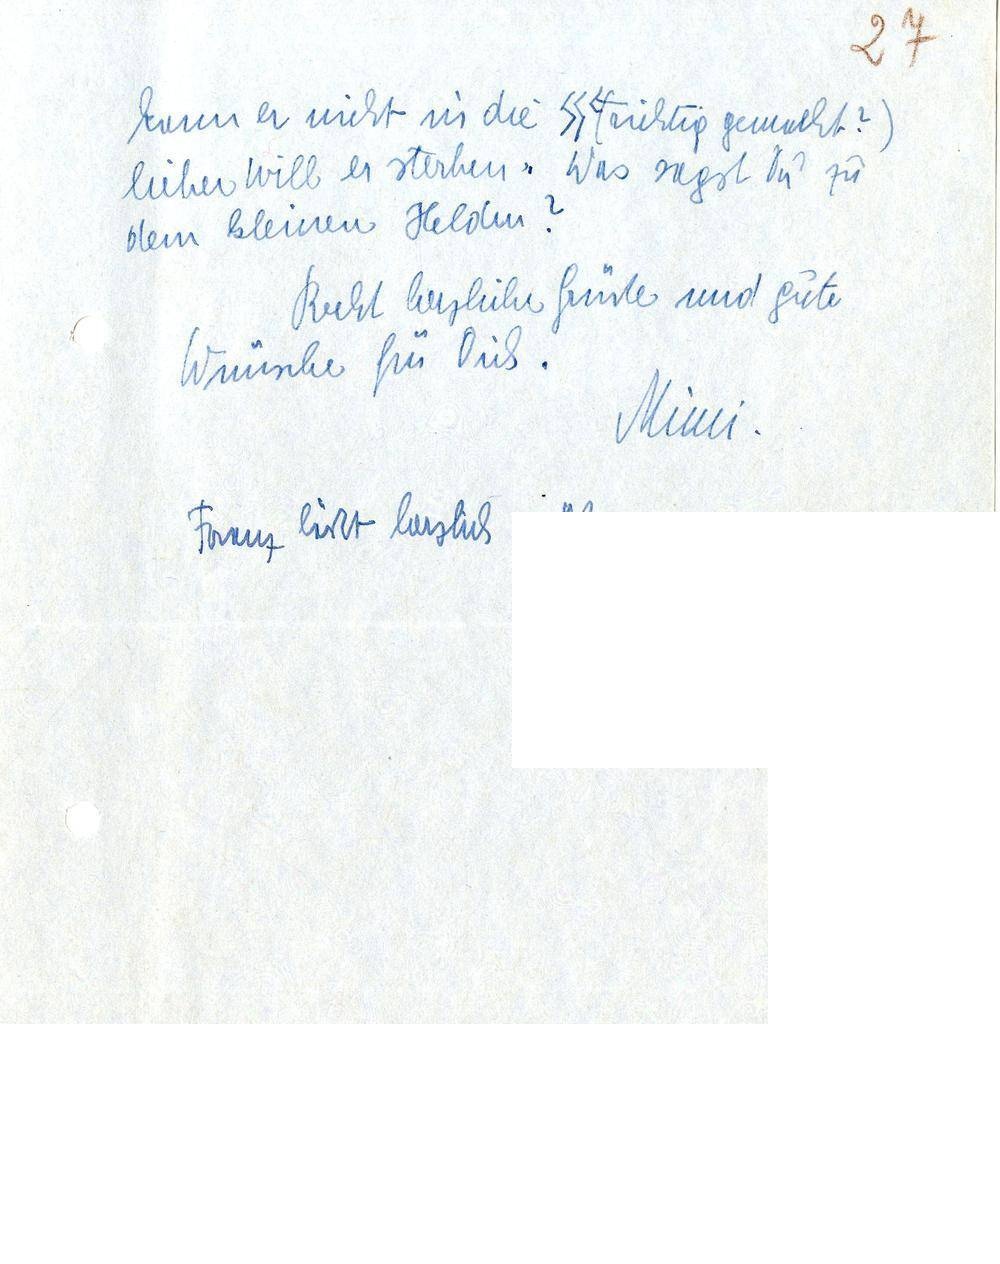 27
kann er nicht in die ᛋᛋ (richtig gemacht?)
lieber will er sterben. Was sagst Du zu
dem kleinen Helden?
Recht herzliche Grüße und gute
Wünsche für Dich.
Mimi.
Franz läßt herzlich